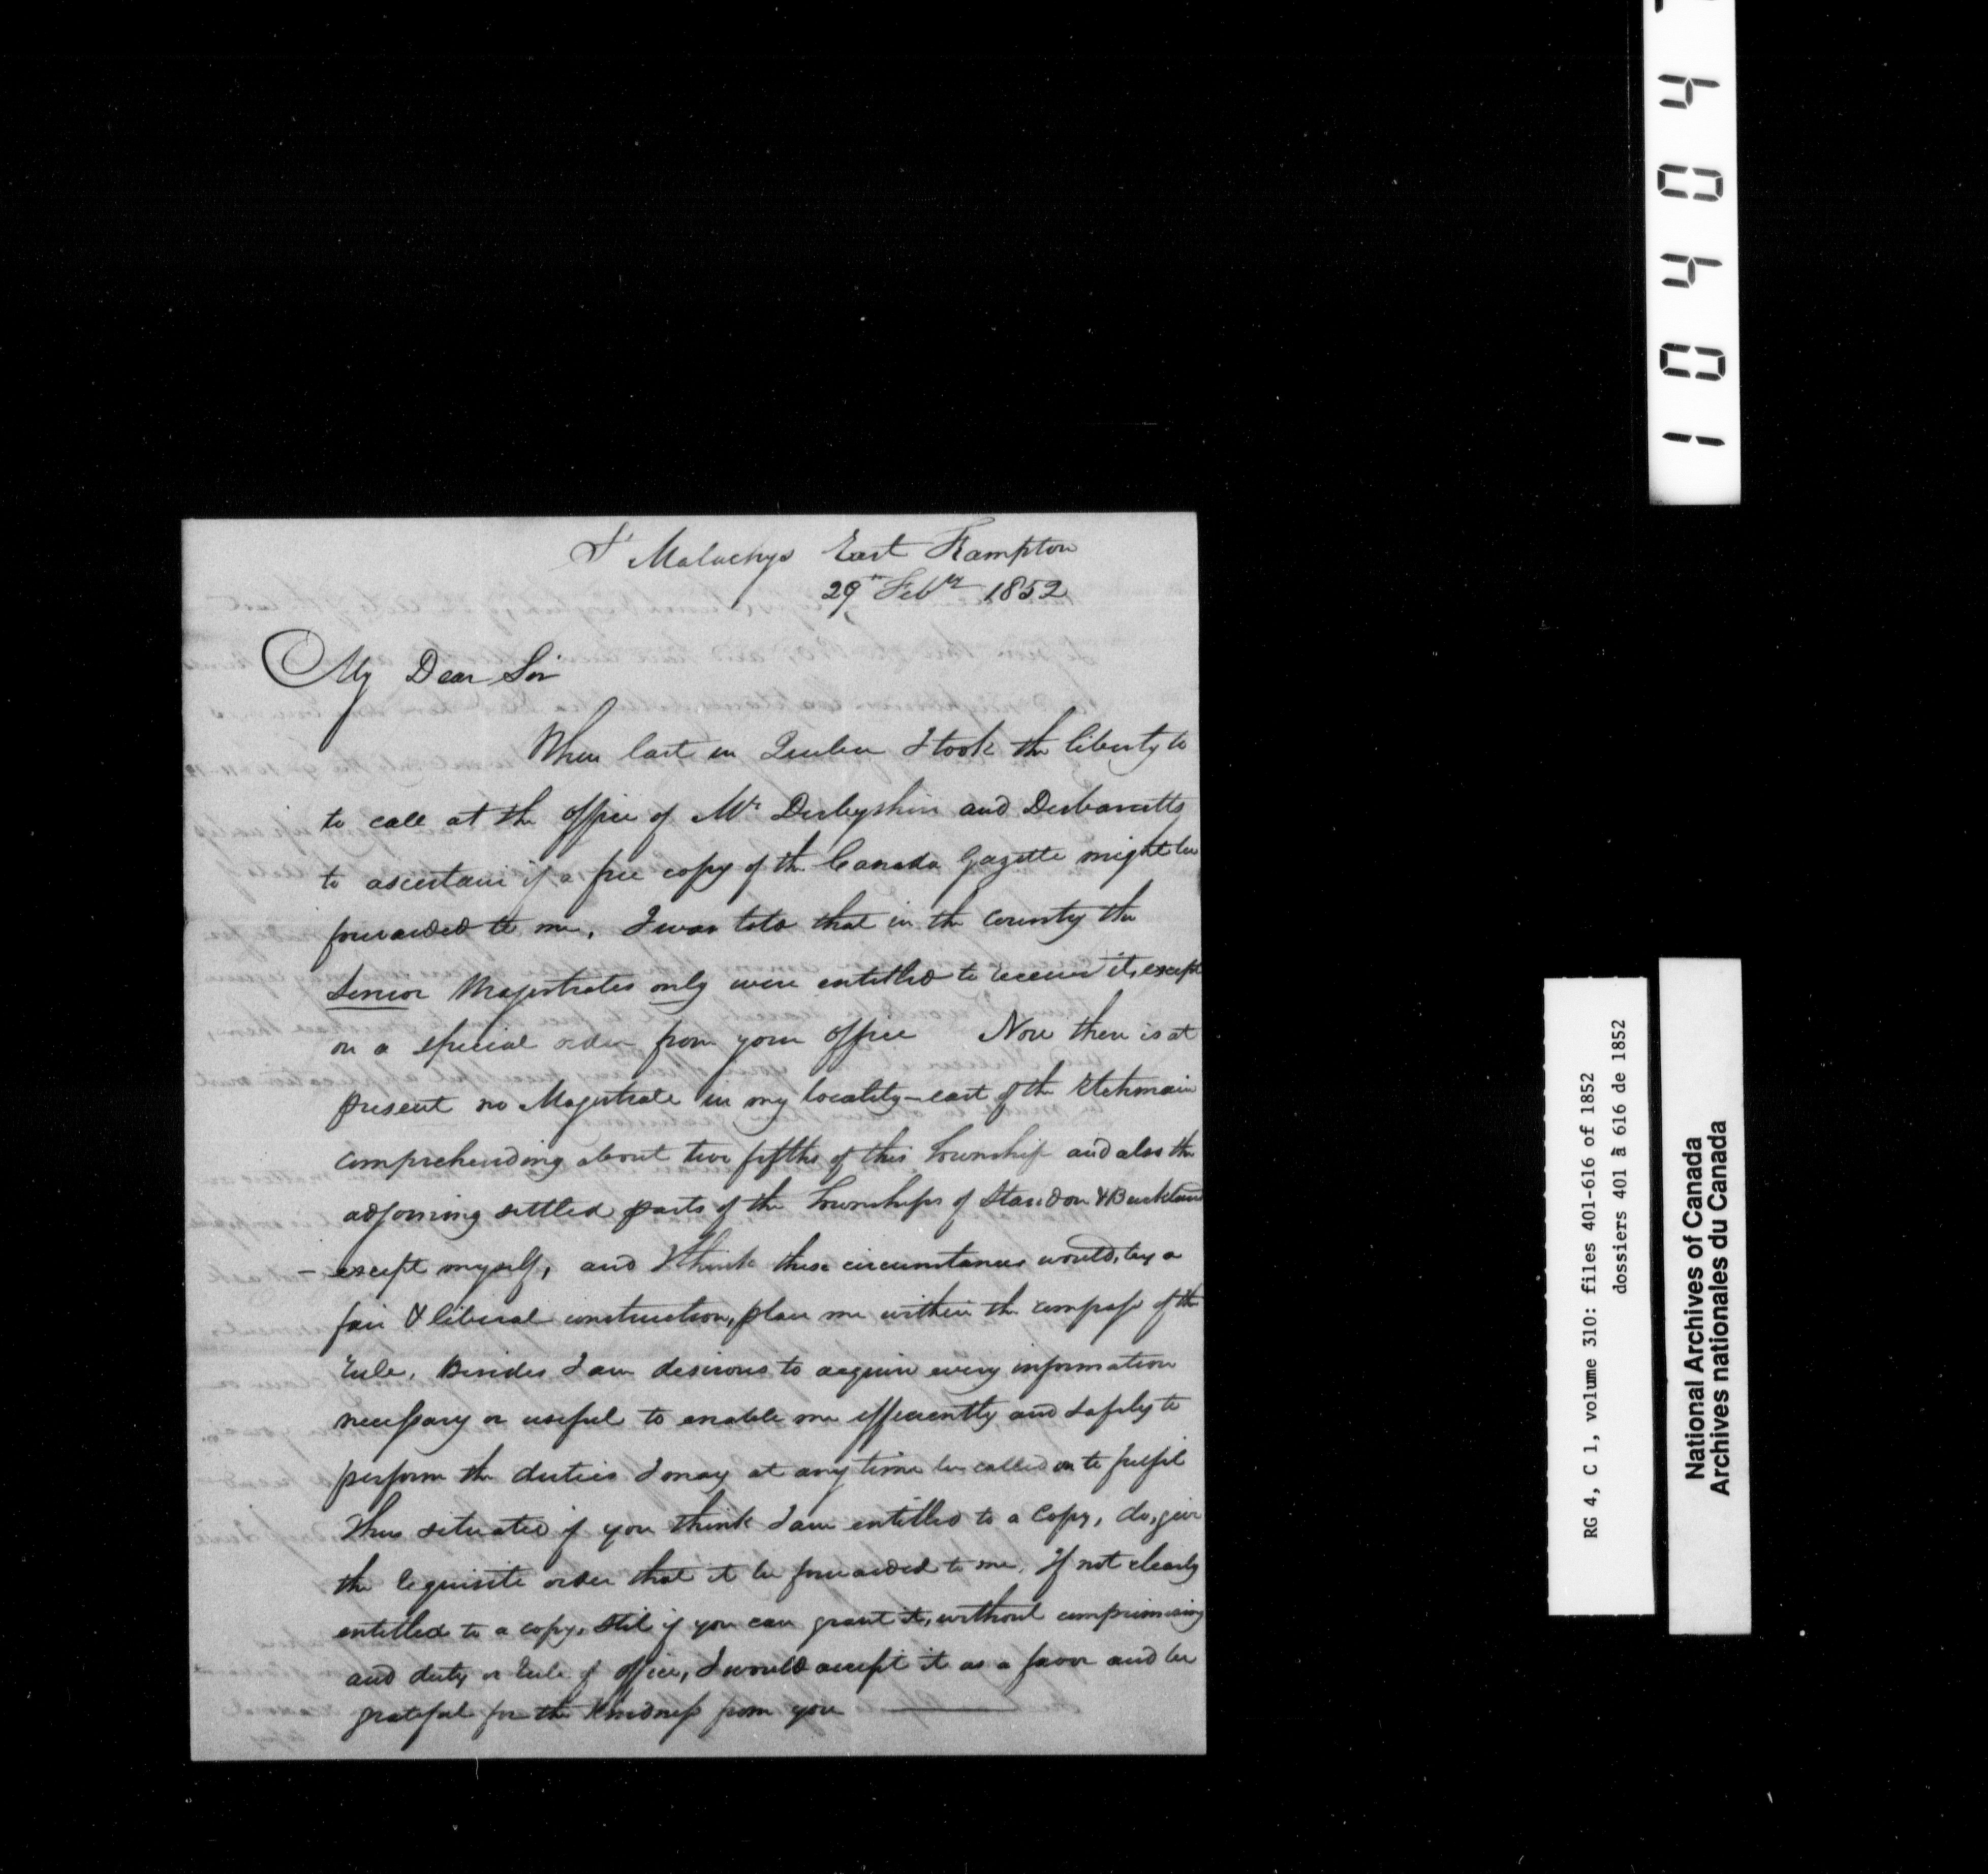 St Malachys East Frampton
29th Feby 1852
My Dear Sir
When last in Quebec I took the liberty to
to call at the office of Mr Derbyshire and Desbaratts
to ascertain if a free copy of the Canada Gazette might be
forwarded to me. I was told that in the County the
Senior Magistrates only were entitled to receive it, except
on a special order from your office Now there is at
present no Magistrate in my locality - east of the Etchmain
comprehending about two fifths of this Township and also the
adjoining settled parts of the Townships of Standon & Buckland
- except myself, and I think these circumstances would, by a
fair & liberal construction, place me within the compass of the
rule. Besides I am desirous to acquire every information
necessary or useful to enable me efficiently and safely to
perform the duties I may at any time be called on to fulfil
Thus situated if you think I am entitled to a Copy, do, give
the requisite order that it be forwarded to me. If not clearly
entitled to a copy, still if you can grant it, without compromising
and duty or rule of office, I would accept it as a favor and be
grateful for the kindness from you
1 0 4 0 4
RG 4, C 1, volume 310: files 401-616 of 1852
dossiers 401 à 616 de 1852
National Archives of Canada
Archives nationales du Canada